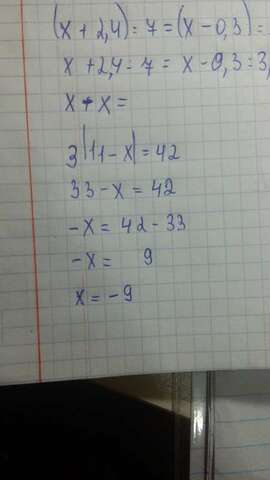 (x + 2,4) : 7 = (x - 0,3) :
x + 2,4 : 7 = x - 0,3 : 3,
x + x =
3|11 - x| = 42
33 - x = 42
-x = 42 - 33
-x = 9
x = -9